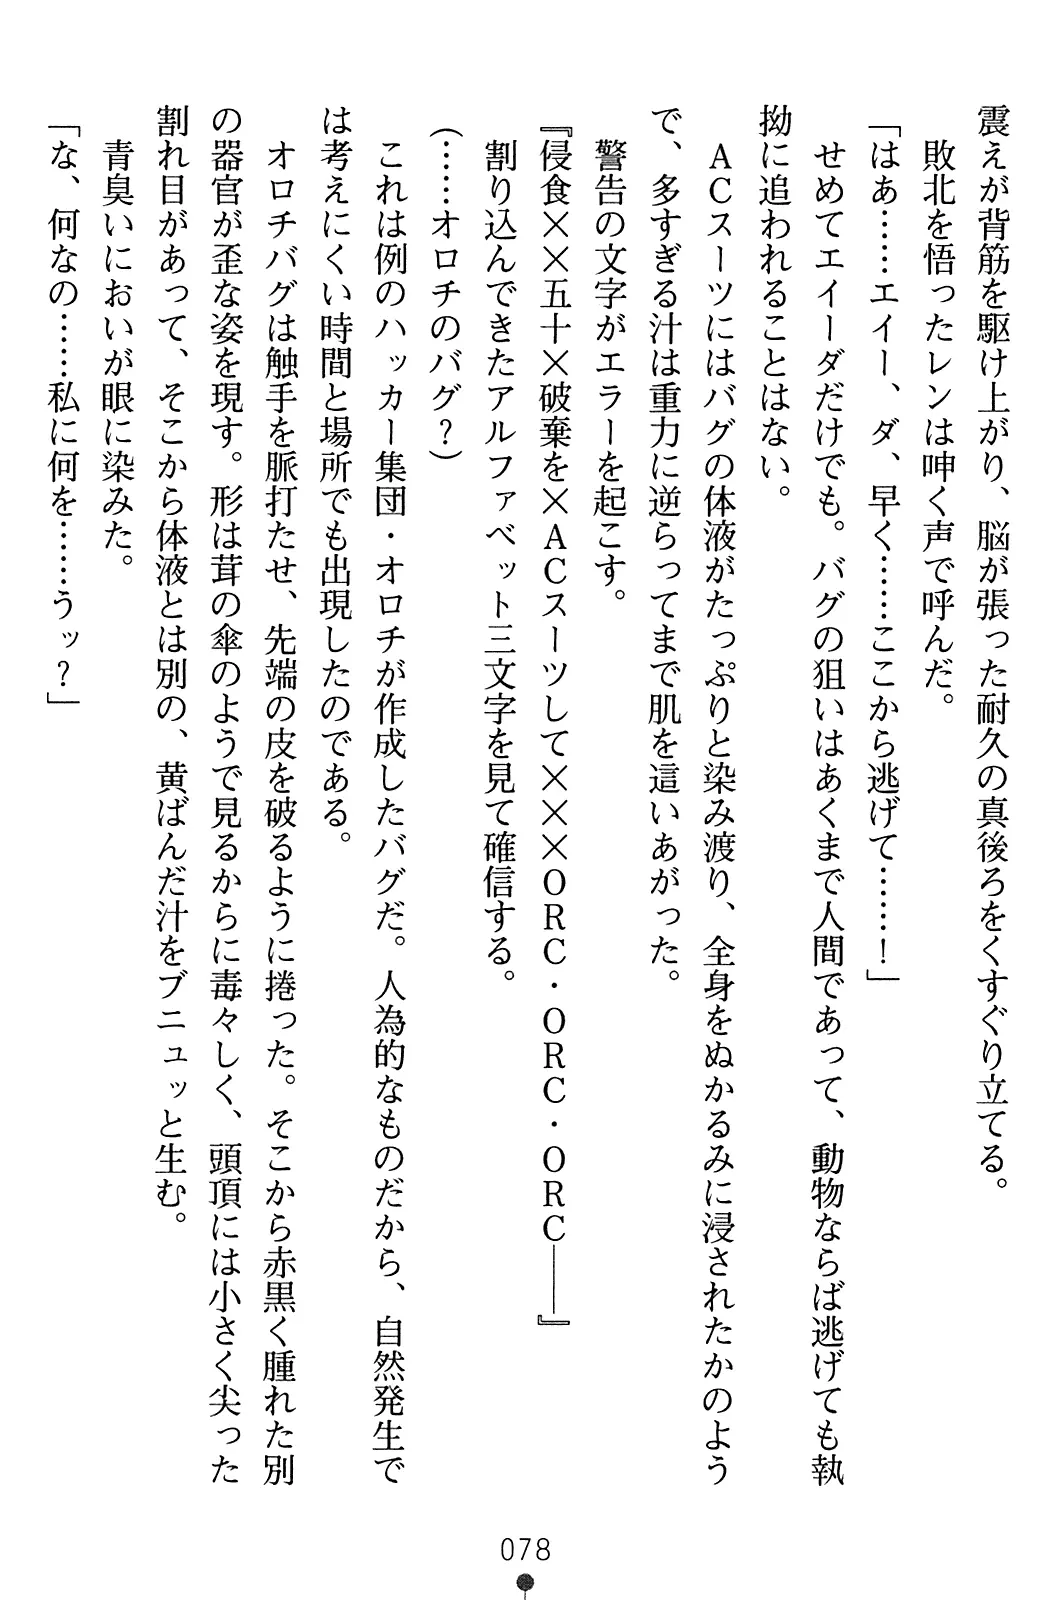 震えが背筋を駆け上がり、脳が張った耐久の真後ろをくすぐり立てる。
敗北を悟ったレンは呻く声で呼んだ。
「はあ……エイー、ダ、早く……ここから逃げて……！」
せめてエイーダだけでも。バグの狙いはあくまで人間であって、動物ならば逃げても執
拗に追われることはない。
ＡＣスーツにはバグの体液がたっぷりと染み渡り、全身をぬかるみに浸されたかのよう
で、多すぎる汁は重力に逆らってまで肌を這いあがった。
警告の文字がエラーを起こす。
『侵食××五十×破棄を×ＡＣスーツして×××ＯＲＣ・ＯＲＣ・ＯＲＣ――』
割り込んできたアルファベット三文字を見て確信する。
(……オロチのバグ？)
これは例のハッカー集団・オロチが作成したバグだ。人為的なものだから、自然発生で
は考えにくい時間と場所でも出現したのである。
オロチバグは触手を脈打たせ、先端の皮を破るように捲った。そこから赤黒く腫れた別
の器官が歪な姿を現す。形は茸の傘のようで見るからに毒々しく、頭頂には小さく尖った
割れ目があって、そこから体液とは別の、黄ばんだ汁をブニュッと生む。
青臭いにおいが眼に染みた。
「な、何なの……私に何を……うッ？」
078